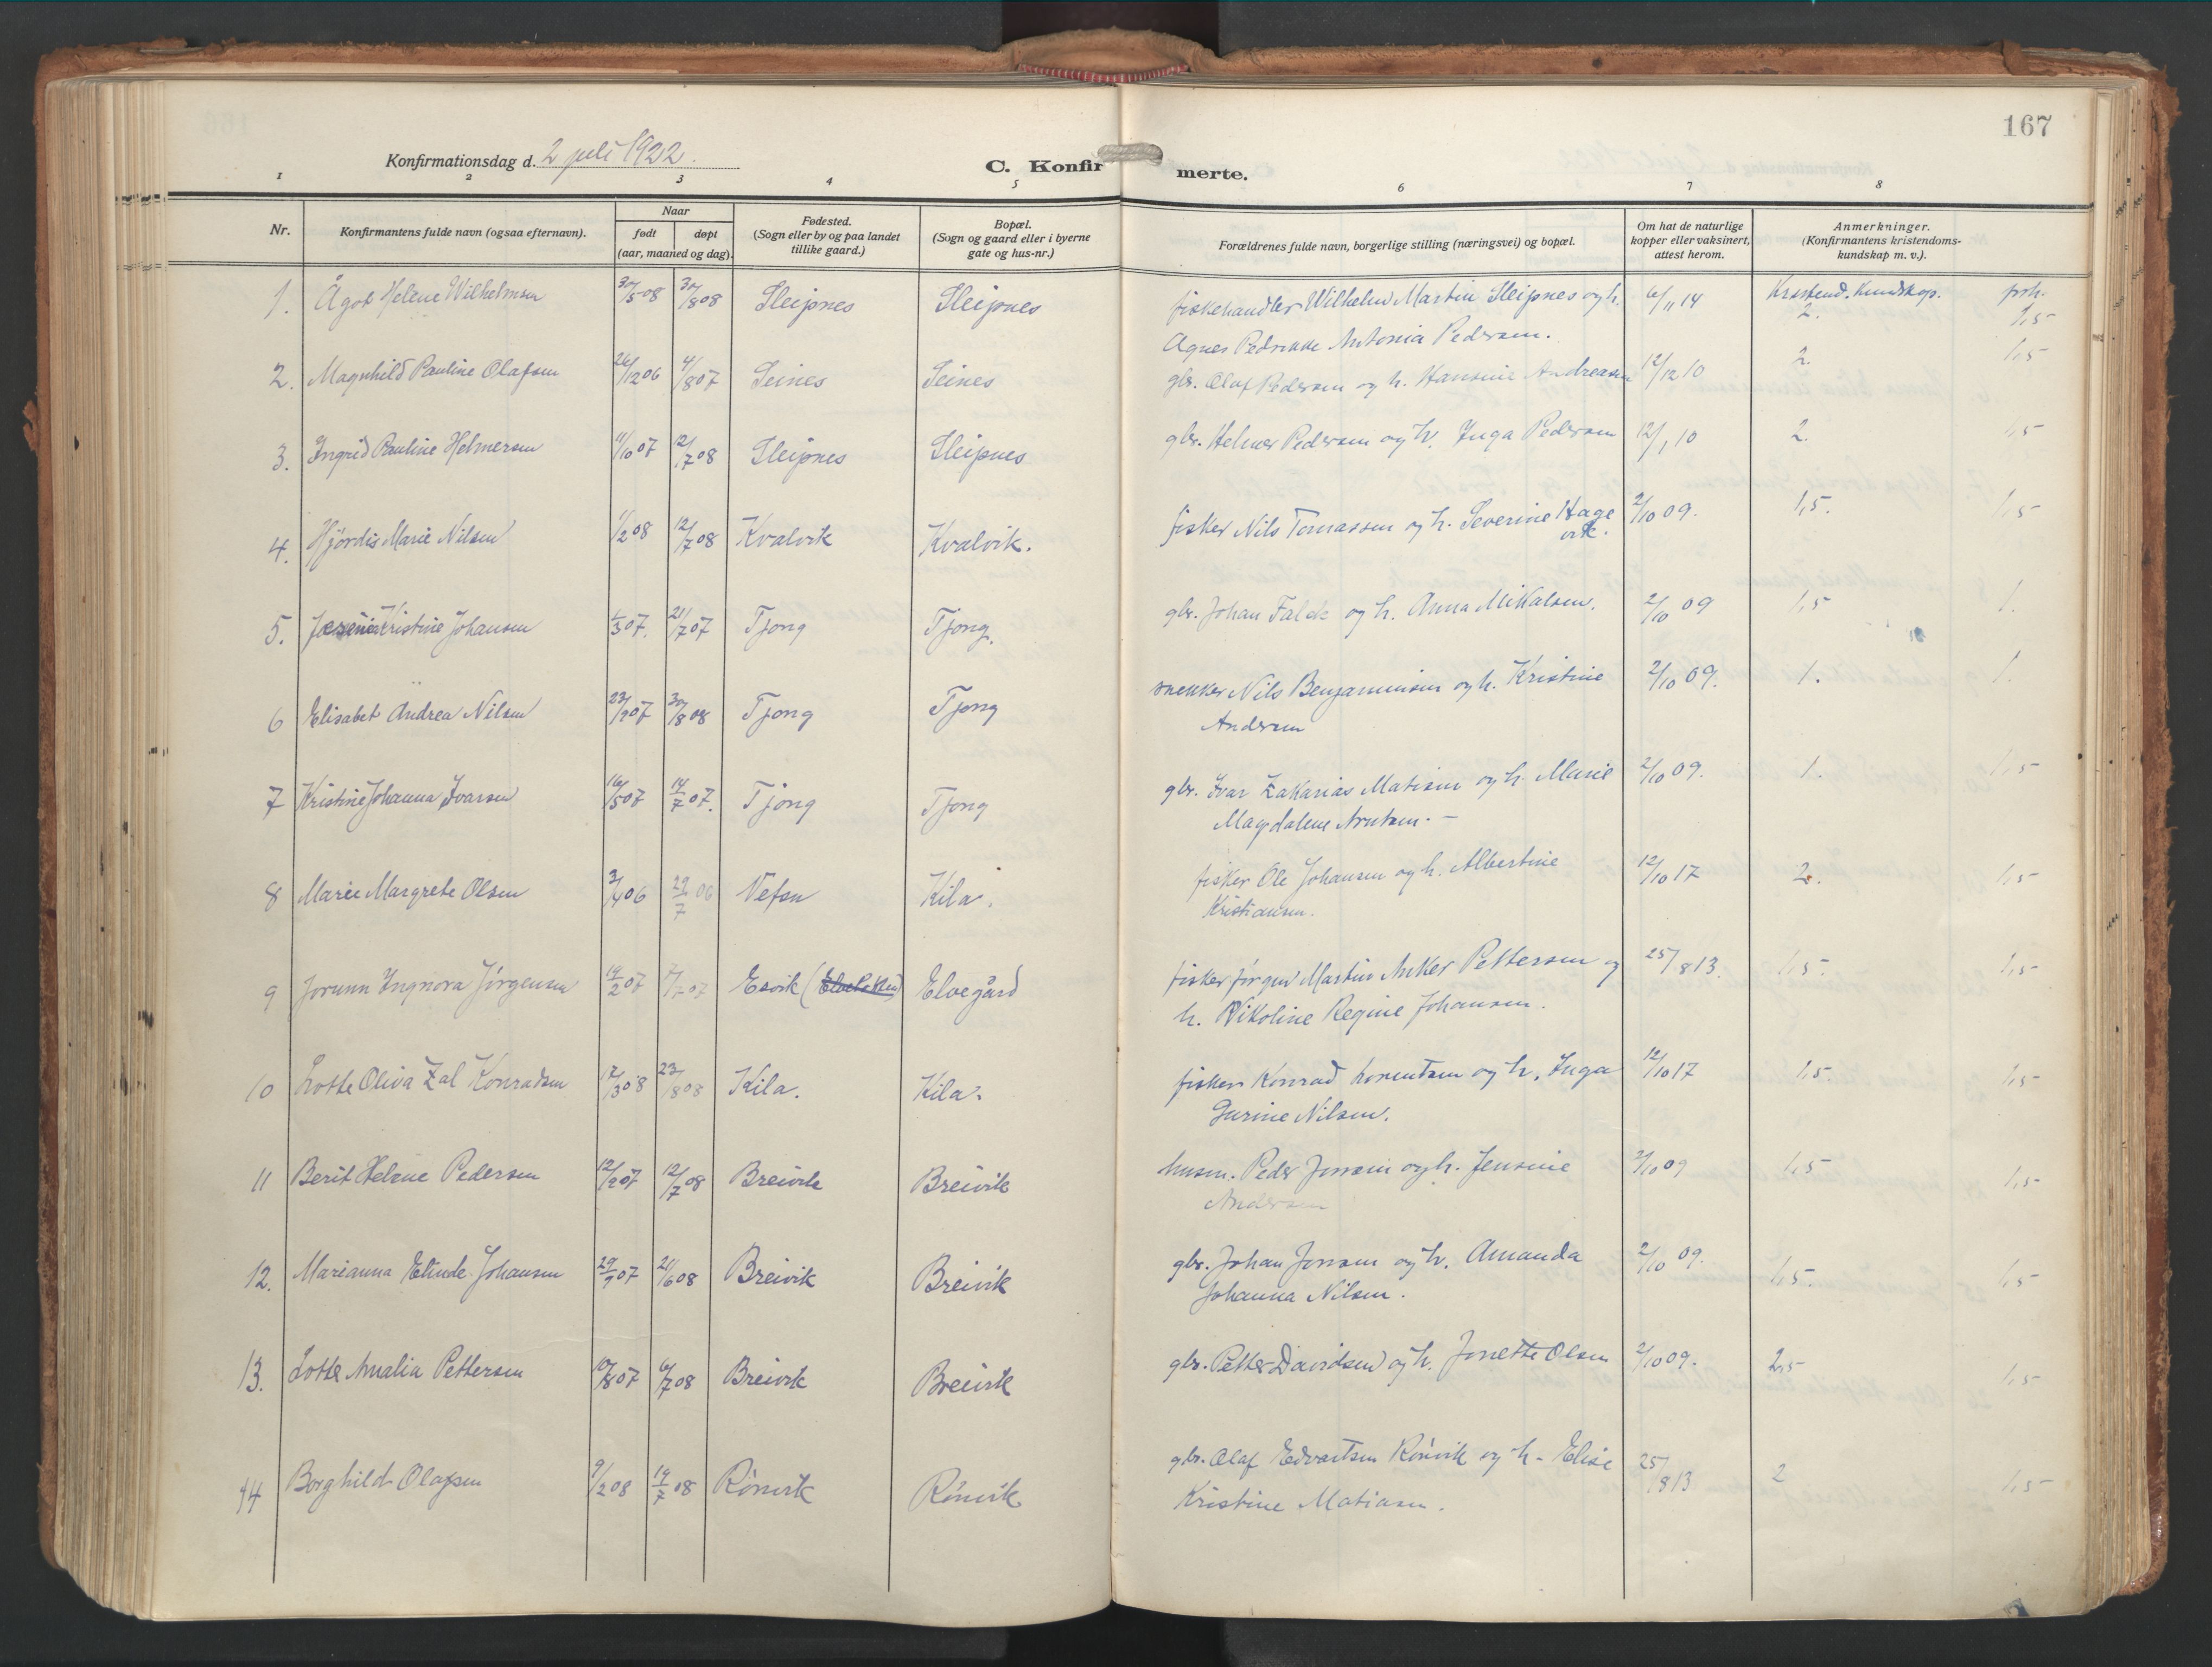 167
Konfirmationsdag d. 2 juli 1922.
C. Konfirmerte.
1 2 3 4 5 6 7 8
Nr. Konfirmantens fulde navn (ogsaa efternavn). Naar født døpt (aar, maaned og dag). Fødested. (Sogn eller by og paa landet tillike gaard.) Bopæl. (Sogn og gaard eller i byerne gate og hus-nr.) Forældrenes fulde navn, borgerlige stilling (næringsvei) og bopæl. Om hat de naturlige kopper eller vaksinert, attest herom. Anmerkninger. (Konfirmantens kristendoms-kundskap m. v.).
1. Ågot Helene Wilhelmsen 30/5 08 30/8 08 Sleipnes Sleipnes fiskehandler Wilhelm Martin Sleipnes og h. 6/11 14 Kristend. Kundskap. 2. 1,5
Agnes Antonia Pedersen.
2. Magnhild Pauline Olafsen 26/12 06 4/8 07 Seines Seines gbr. Olaf Pedersen og h. Hansine Andreasen 12/12 10 2. 1,5
3. Ingrid Pauline Helmersen 4/10 07 12/7 08 Sleipnes Sleipnes gbr. Helmer Pedersen og h. Inga Pedersen 12/1 10 2. 1,5
4. Hjördis Marie Nilsen 1/2 08 12/7 08 Kvalvik Kvalvik. fisker Nils Tomassen og h. Severine Hage 2/10 09. 1,5. 1,5
vik.
5. Kristine Johansen 1/3 07. 21/7 07 Tjong Tjong. gbr. Johan Falck og h. Anna Mikalsen. 2/10 09 1,5 1.
6 Elisabet Andrea Nilsen 23/9 07 30/8 08 Tjong Tjong snekker Nils Benjaminsen og h. Kristine 2/10 09. 1. 1.
Andersen
7 Kristine Johanna Ivarsen 16/5 07 14/7 07. Tjong Tjong gbr. Ivar Zakarias Matisen og h. Marie 2/10 09. 1. 1,5
Magdalene Arntsen. -
8 Marie Margrete Olsen 3/4 06 29/7 06 Vefsn Kila. fisker Ole Johansen og h. Albertine 12/10 17 2. 1,5
Kristiansen.
9 Jorunn Ingnora Jörgensen 19/2 07 7/7 07 Esvik (Elvebakken) Elvegård fisker Jörgen Martin Anker Pettersen og 25/8 13. 1,5. 1,5
h. Nikoline Regine Johansen.
10 Lotte Oliva Zal Konradsen 17/3 08 23/8 08 Kila. Kila. fisker Konrad Lorentsen og h. Inga 12/10 17 1,5. 1,5
Gurine Nilsen.
11 Berit Helene Pedersen 12/9 07 12/7 08 Breivik Breivik husm. Peder Jonsen og h. Jensine 2/10 09 1,5 1,5
Andersen
12. Marianna Elinde Johansen 29/9 07 21/6 08 Breivik Breivik gbr. Johan Jonsen og h. Amanda 2/10 09. 1,5. 1,5
Johanna Nilsen.
13. Lotte Amalia Pettersen 10/8 07 6/7 08 Breivik Breivik gbr. Petter Davidsen og h. Jonette Olsen 2/10 09. 2,5 1,5
14 Borghild Olafsen 9/2 08 19/7 08 Rönvik Rönvik gbr. Olaf Edvartsen Rönvik og h. Elise 25/8 13 2 1,5
Kristine Matiasen.